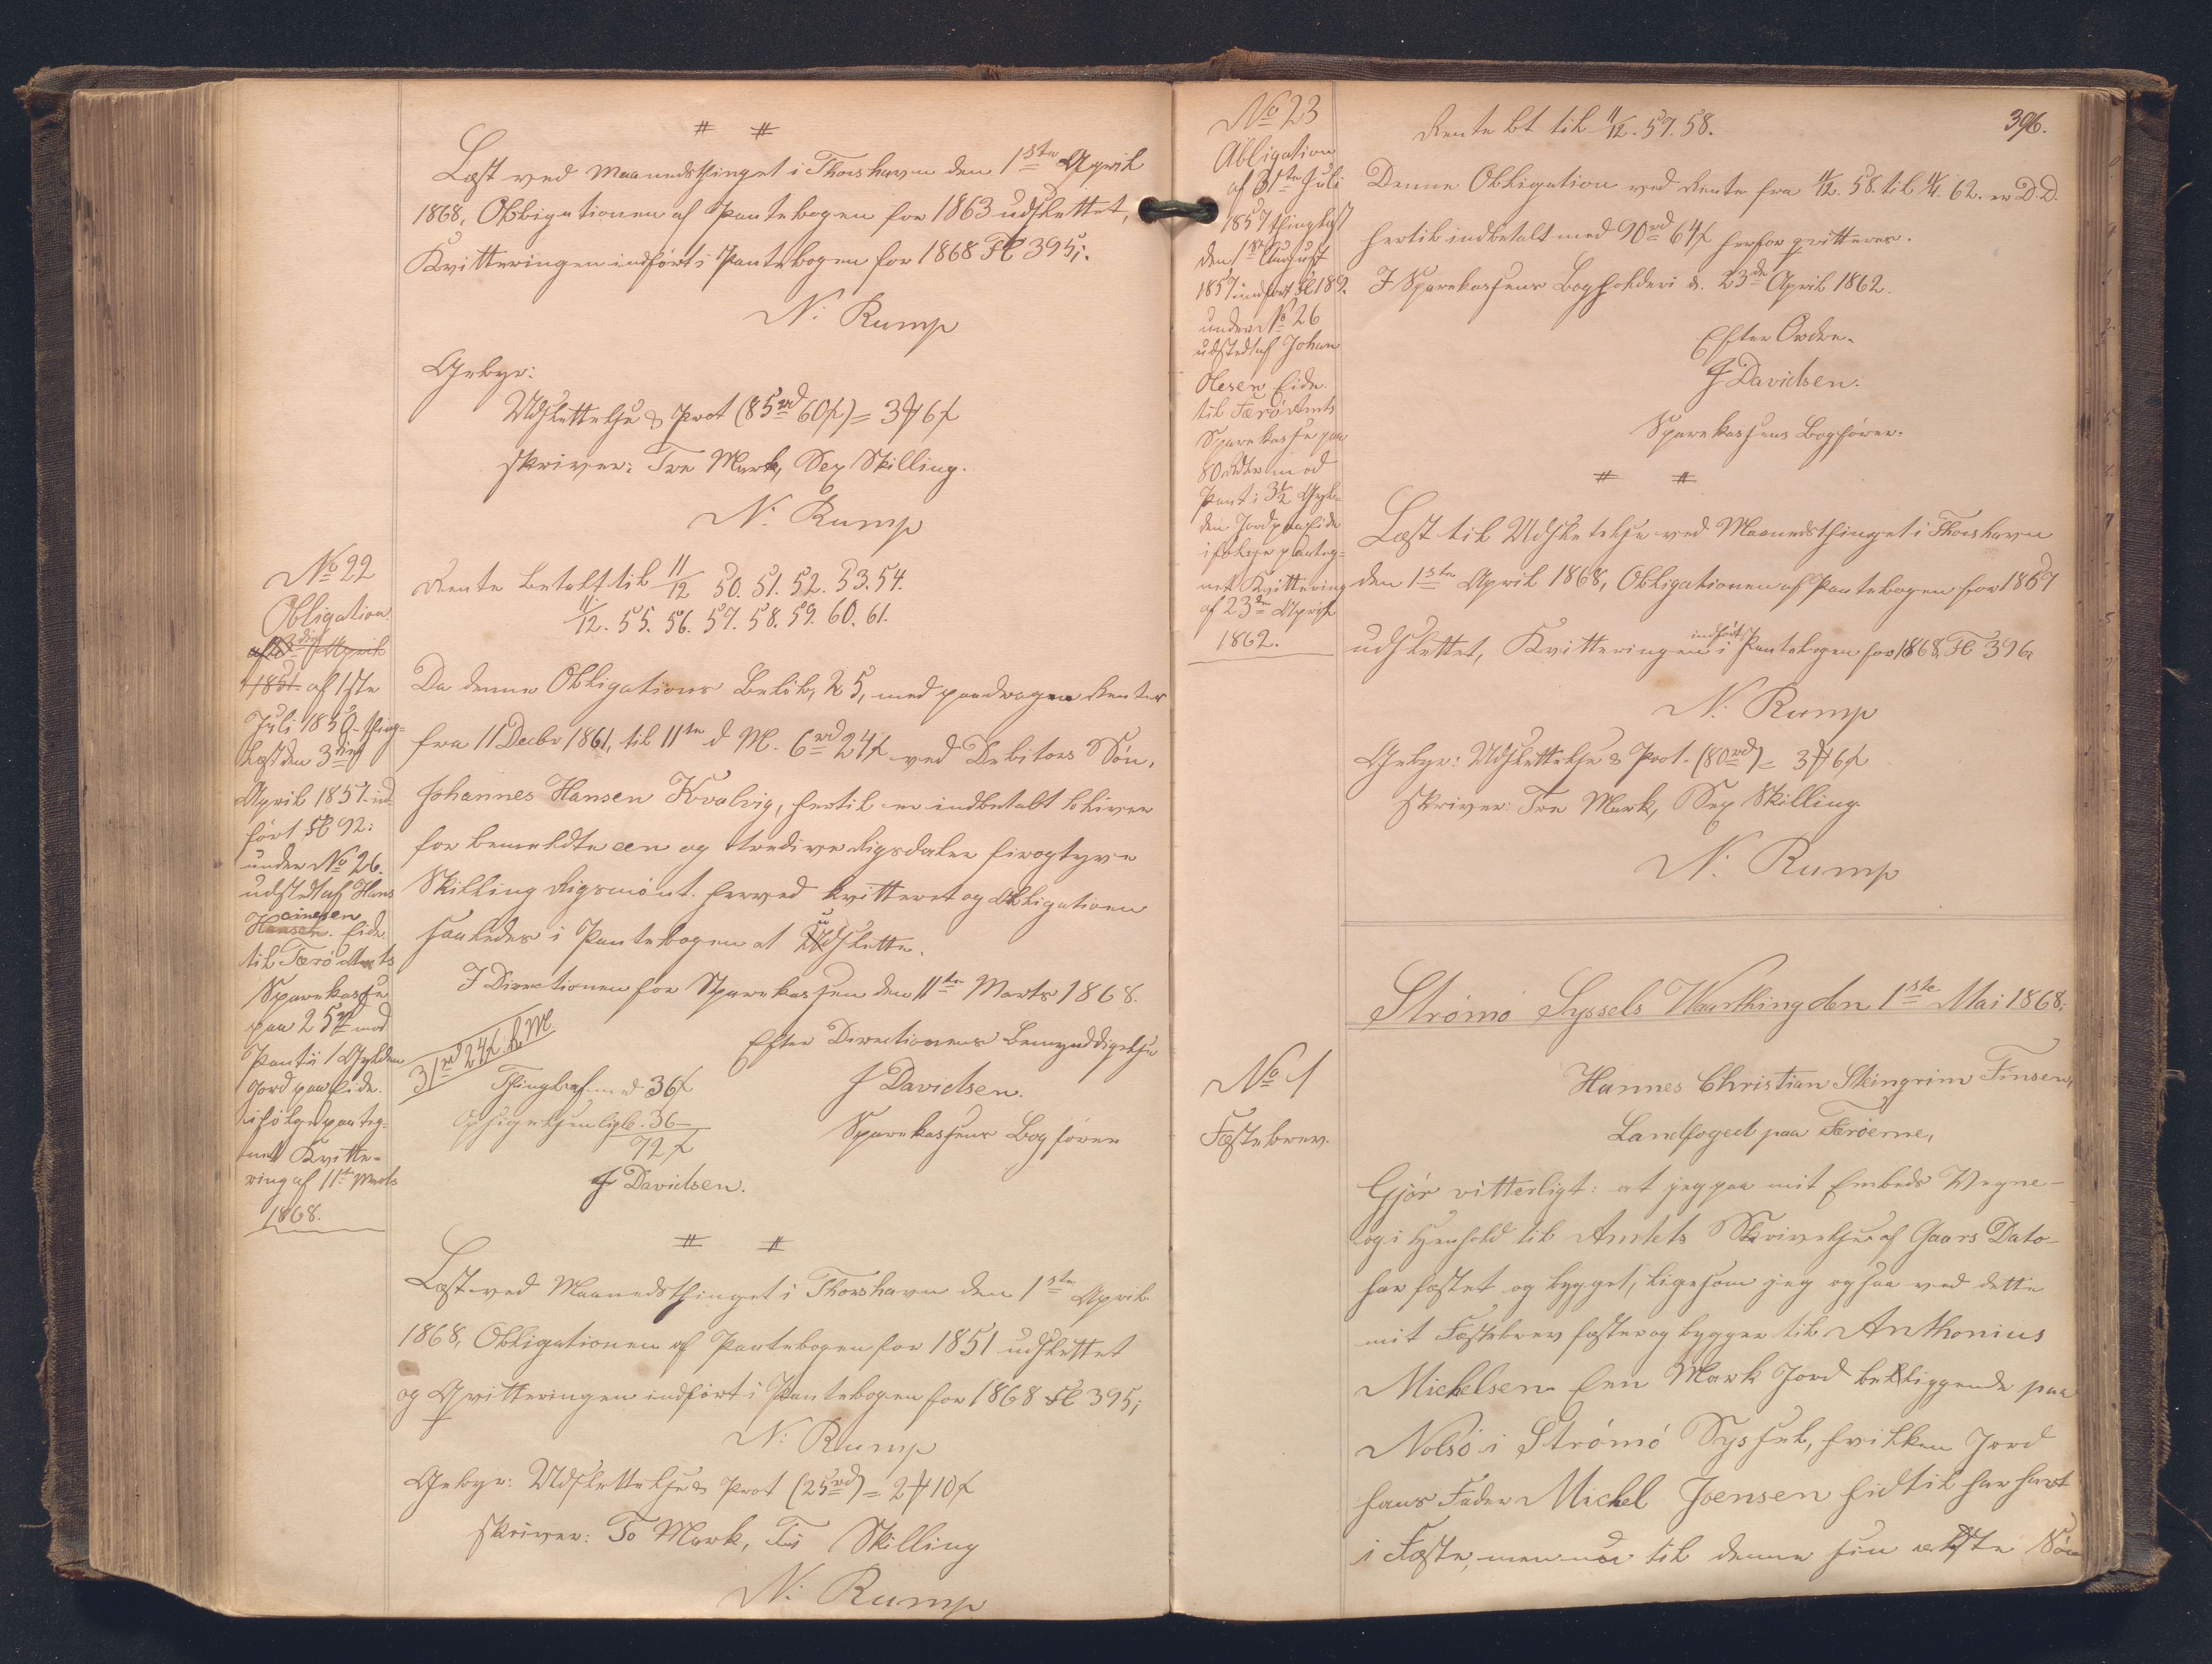 # #
Læst ved Maanedsthinget i Thorshavn den 1ste April
1868, Obligationen af Pantebogen for 1863 udslettet,
Kvitteringen indført i Pantebogen for 1868 Fl 395;.
N: Rump
Gebyr:
Udslettelse & Prot (85rd 60ß) = 3 ℳ 6ß
skriver: Tre Mark, Sex Skilling.
N: Rump
No 22
Obligation
af 3die April
1851. af 1ste
Juli 1850. thing-
læst den 3die
April 1851. ind-
ført Fl 92:
under No 26.
udstedt af Hans
Hansen. Eide
Joinesen
til Færö Amts
Sparekasse
paa 25rd mod
Pant i 1 Gylden
Jord paa Eide.
ifölge paateg-
net Kvitte-
ring af 11te Marts
1868.
Rente betalt til 11/12 50. 51. 52. 53. 54.
11/12. 55. 56. 57. 58. 59. 60. 61.
Da denne Obligations Beløb, 25, med paadragen Renter
fra 11 Decbr 1861, til 11te d M. 6rd 24ß ved Debitors Søn,
Johannes Hansen Kvalvig, hertil er indbetalt bliver
for bemeldte een og tredive Rigsdaler fireogtyve
Skilling Rigsmönt. herved kvitteret og Obligationen
saaledes i Pantebogen at udslette.
I Directionen for Sparekassen den 11te Marts 1868.
31rd 24ß. R.M.
Efter Directionens Bemyndigelse
J Davidsen.
Sparekassens Bogfører
Thinglæsn. med 36ß
Opsigelsen ligl. 36 —
72 ß
J Davidsen.
# #
Læst ved Maanedsthinget i Thorshavn den 1ste April
1868, Obligationen af Pantebogen for 1851 udslettet
og Qvitteringen indført i Pantebogen for 1868 Fl 395;
N: Rump
Gebyr: Udslettelse & Prot (25rd) = 2 ℳ 10ß
skriver: To Mark, Ti Skilling
N: Rump
396.
No 23
Obligation
af 31te Juli
1857 thinglæst
den 1ste August
1857 indført Fl 189.
under No 26
udstedt af Johan
Olesen Eide.
til Færö Amts
Sparekasse paa
80 Rdlr mod
Pant i 3½ Gyl-
den Jord paa Eide
ifølge paateg-
net Kvittering
af 23de April
1862.
Rente bt til 11/12. 57. 58.
Denne Obligation ved Rente fra 11/12. 58. til 11/4. 62. er D.D.
hertil indbetalt med 90rd 64ß herfor qvitteres.
I Sparekassens Bogholderi d. 23de April 1862.
Efter Ordre.
J Davidsen.
Sparekassens Bogfører.
# #
Læst til Udslettelse ved Maanedsthinget i Thorshavn
den 1ste April 1868, Obligationen af Pantebogen for 1857
udslettet, Kvitteringen indført i Pantebogen for 1868 Fl 396
N: Rump
Gebyr: Udslettelse & Prot. (80rd) = 3 ℳ 6ß
skriver: Tre Mark, Sex Skilling
N: Rump
Strömö Syssels Vaarthing den 1ste Mai 1868:
No 1
Fæstebrev.
Hannes Christian Steingrim Finsen,
Landfoged paa Færöerne,
Gjör vitterligt: at jeg paa mit Embeds Vegne -
og i Henhold til Amtets Skrivelse af Gaars Dato -
har fæstet og bygget, ligesom jeg ogsaa ved dette
mit Fæstebrev fæster og bygger til Anthonius
Michelsen Een Mark Jord beliggende paa
Nolsö i Strömö Syssel, hvilken Jord
hans Fader Michel Joensen hidtil har havt
i Fæste, men nu til denne sin ældste Søn